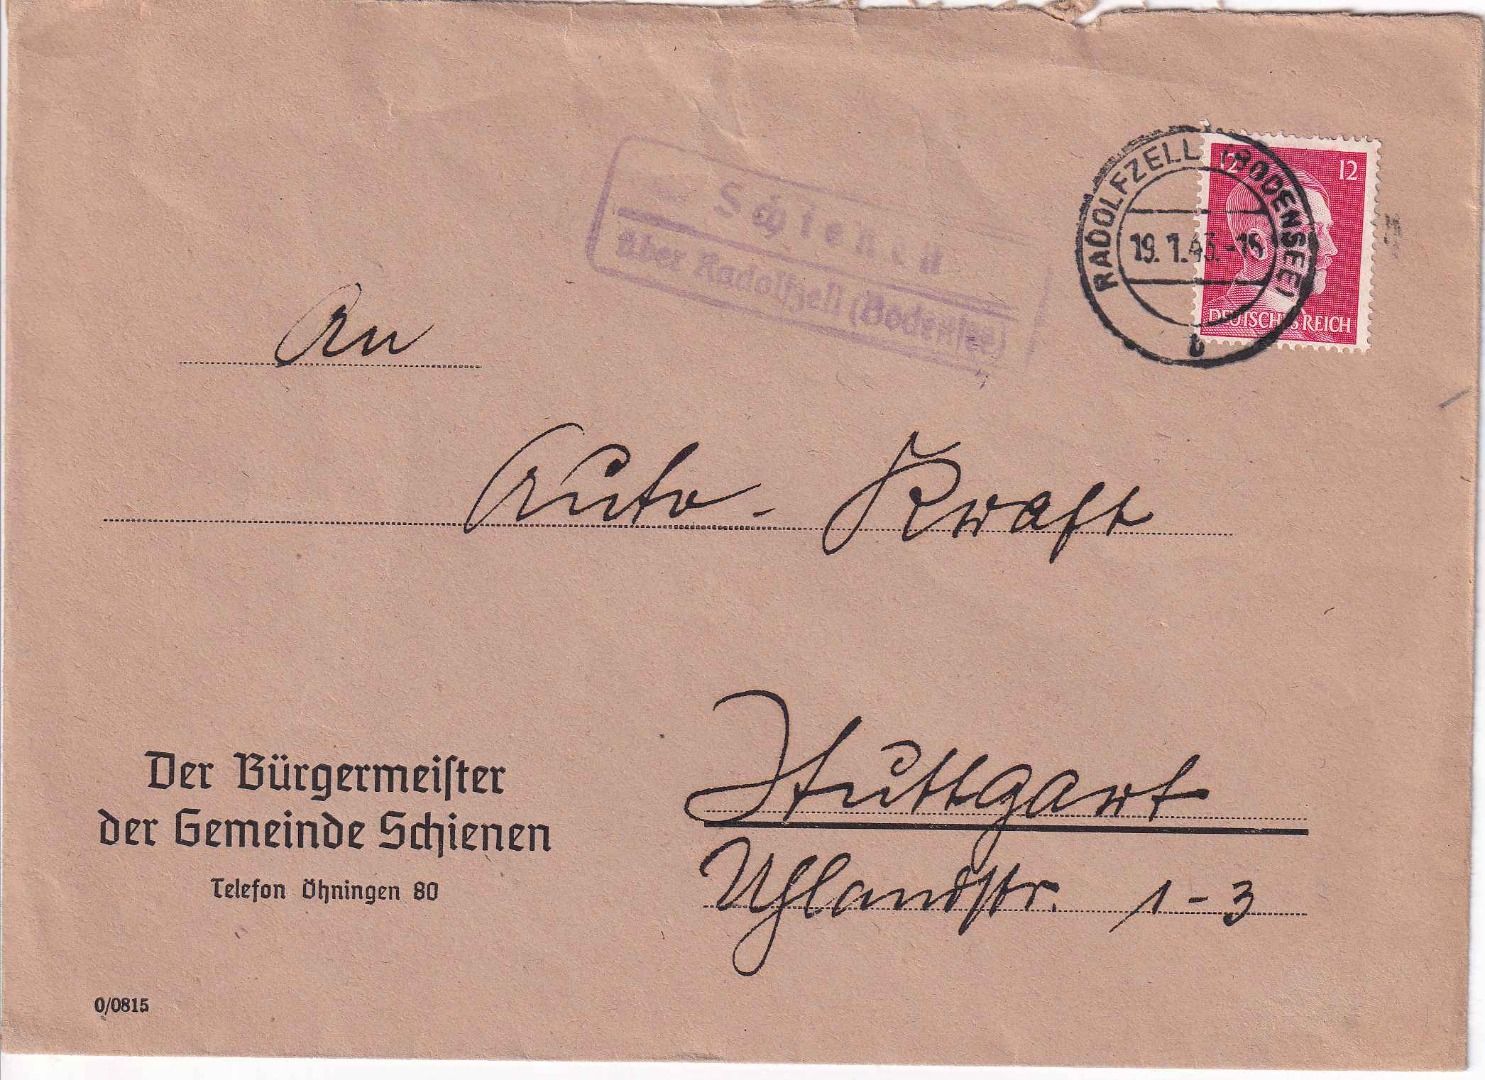 Schienen
über Radolfzell (Bodensee)
RADOLFZELL (BODENSEE)
19.1.43.-18
b
12 12
DEUTSCHES REICH
An
Auto-Kraft
Stuttgart
Uhlandstr. 1-3
Der Bürgermeister
der Gemeinde Schienen
Telefon Öhningen 80
0/0815